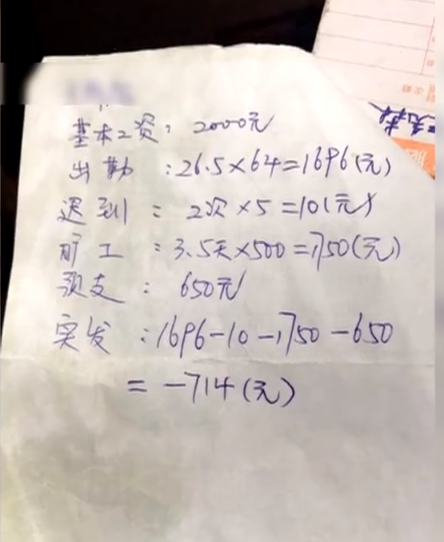 基本工资：2000元
出勤：26.5×64=1696(元)
迟到：2次×5=10(元)
旷工：3.5天×500=1750(元)
预支：650元
实发：1696-10-1750-650
=-714(元)